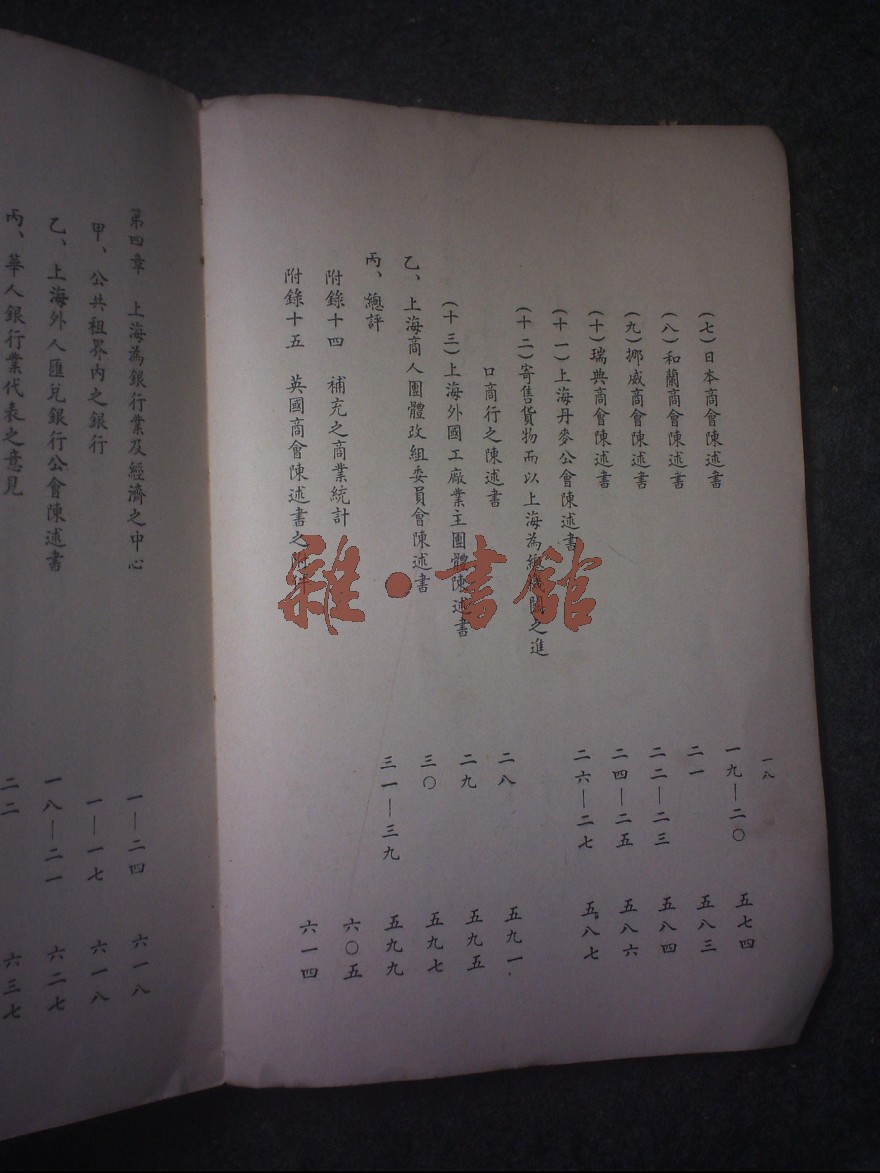 一八
(七)日本商會陳述書 一九—二〇 五七四
(八)和蘭商會陳述書 二一 五八三
(九)挪威商會陳述書 二二—二三 五八四
(十)瑞典商會陳述書 二四—二五 五八六
(十一)上海丹麥公會陳述書 二六—二七 五八七
(十二)寄售貨物而以上海為總機關之進
口商行之陳述書 二八 五九一
(十三)上海外國工廠業主團體陳述書 二九 五九五
乙、上海商人團體改組委員會陳述書 三〇 五九七
丙、總評 三一—三九 五九九
附錄十四 補充之商業統計 六〇五
附錄十五 英國商會陳述書之 六一四
第四章 上海為銀行業及經濟之中心 一—二四 六一八
甲、公共租界內之銀行 一—一七 六一八
乙、上海外人匯兌銀行公會陳述書 一八—二一 六二七
丙、華人銀行業代表之意見 二二 六三七
雜·書館